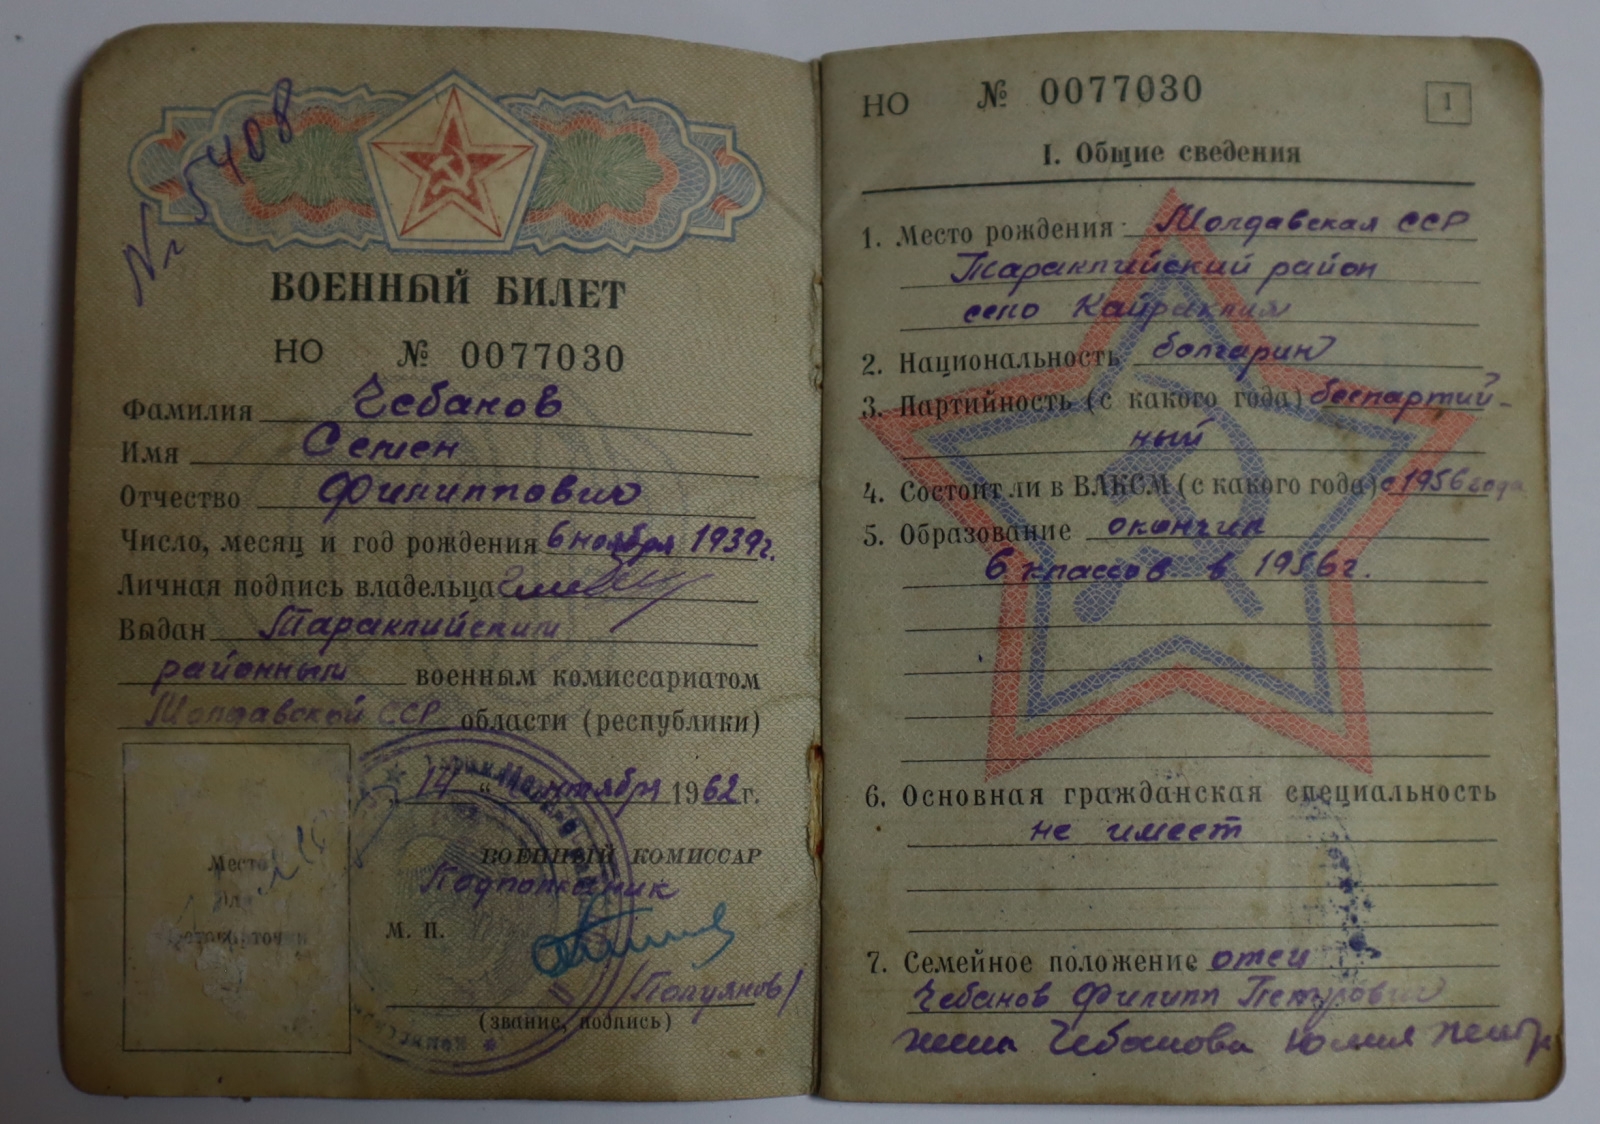 № 5408
ВОЕННЫЙ БИЛЕТ
НО № 0077030
Фамилия Чебанов
Имя Семен
Отчество Филиппович
Число, месяц и год рождения 6 ноября 1939г.
Личная подпись владельца
Выдан Тараклийским
районным военным комиссариатом
Молдавской ССР области (республики)
14 " октября 1962 г.
Место
для
фотокарточки
ВОЕННЫЙ КОМИССАР
Подполковник
М. П.
/Полуянов/
(звание, подпись)
НО № 0077030
1
I. Общие сведения
1. Место рождения Молдавская ССР
Тараклийский район
село Кайраклия
2. Национальность болгарин
3. Партийность (с какого года) беспартий-
ный
4. Состоит ли в ВЛКСМ (с какого года) с 1956 года
5. Образование окончил
6 классов в 1956г.
6. Основная гражданская специальность
не имеет
7. Семейное положение отец
Чебанов Филипп Петрович
жена Чебанова Юлия